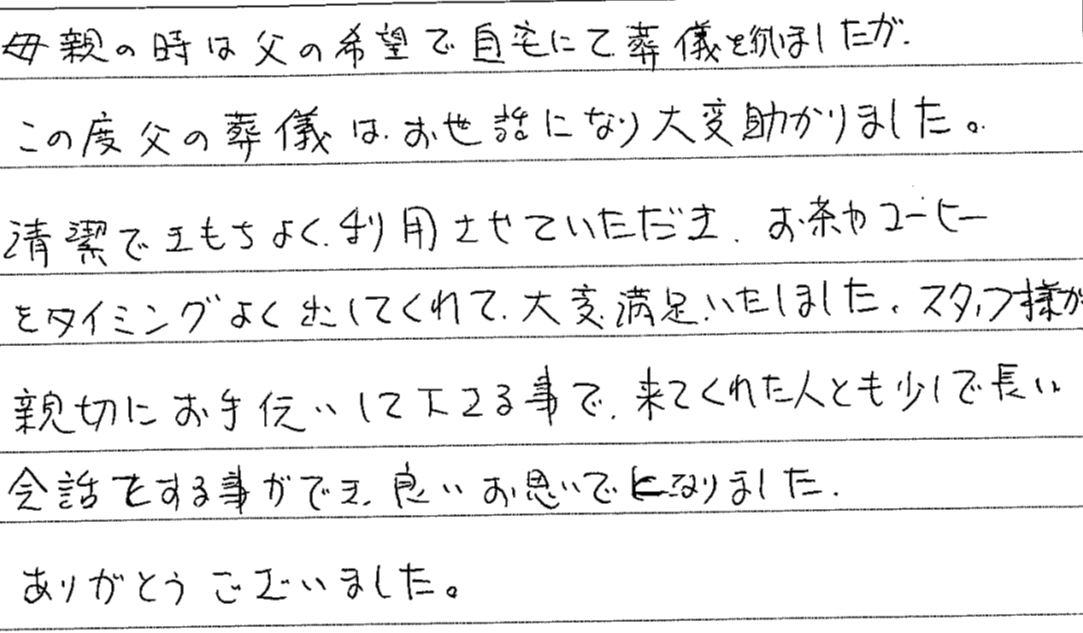 母親の時は父の希望で自宅にて葬儀を行いましたが、
この度父の葬儀は、お世話になり大変助かりました。
清潔できもちよく、利用させていただき、お茶やコーヒー
をタイミングよく出してくれて、大変満足いたしました。スタッフ様が
親切にお手伝いして下さる事で、来てくれた人とも少しで長い
会話をする事ができ、良いお思いでになりました。
ありがとうございました。